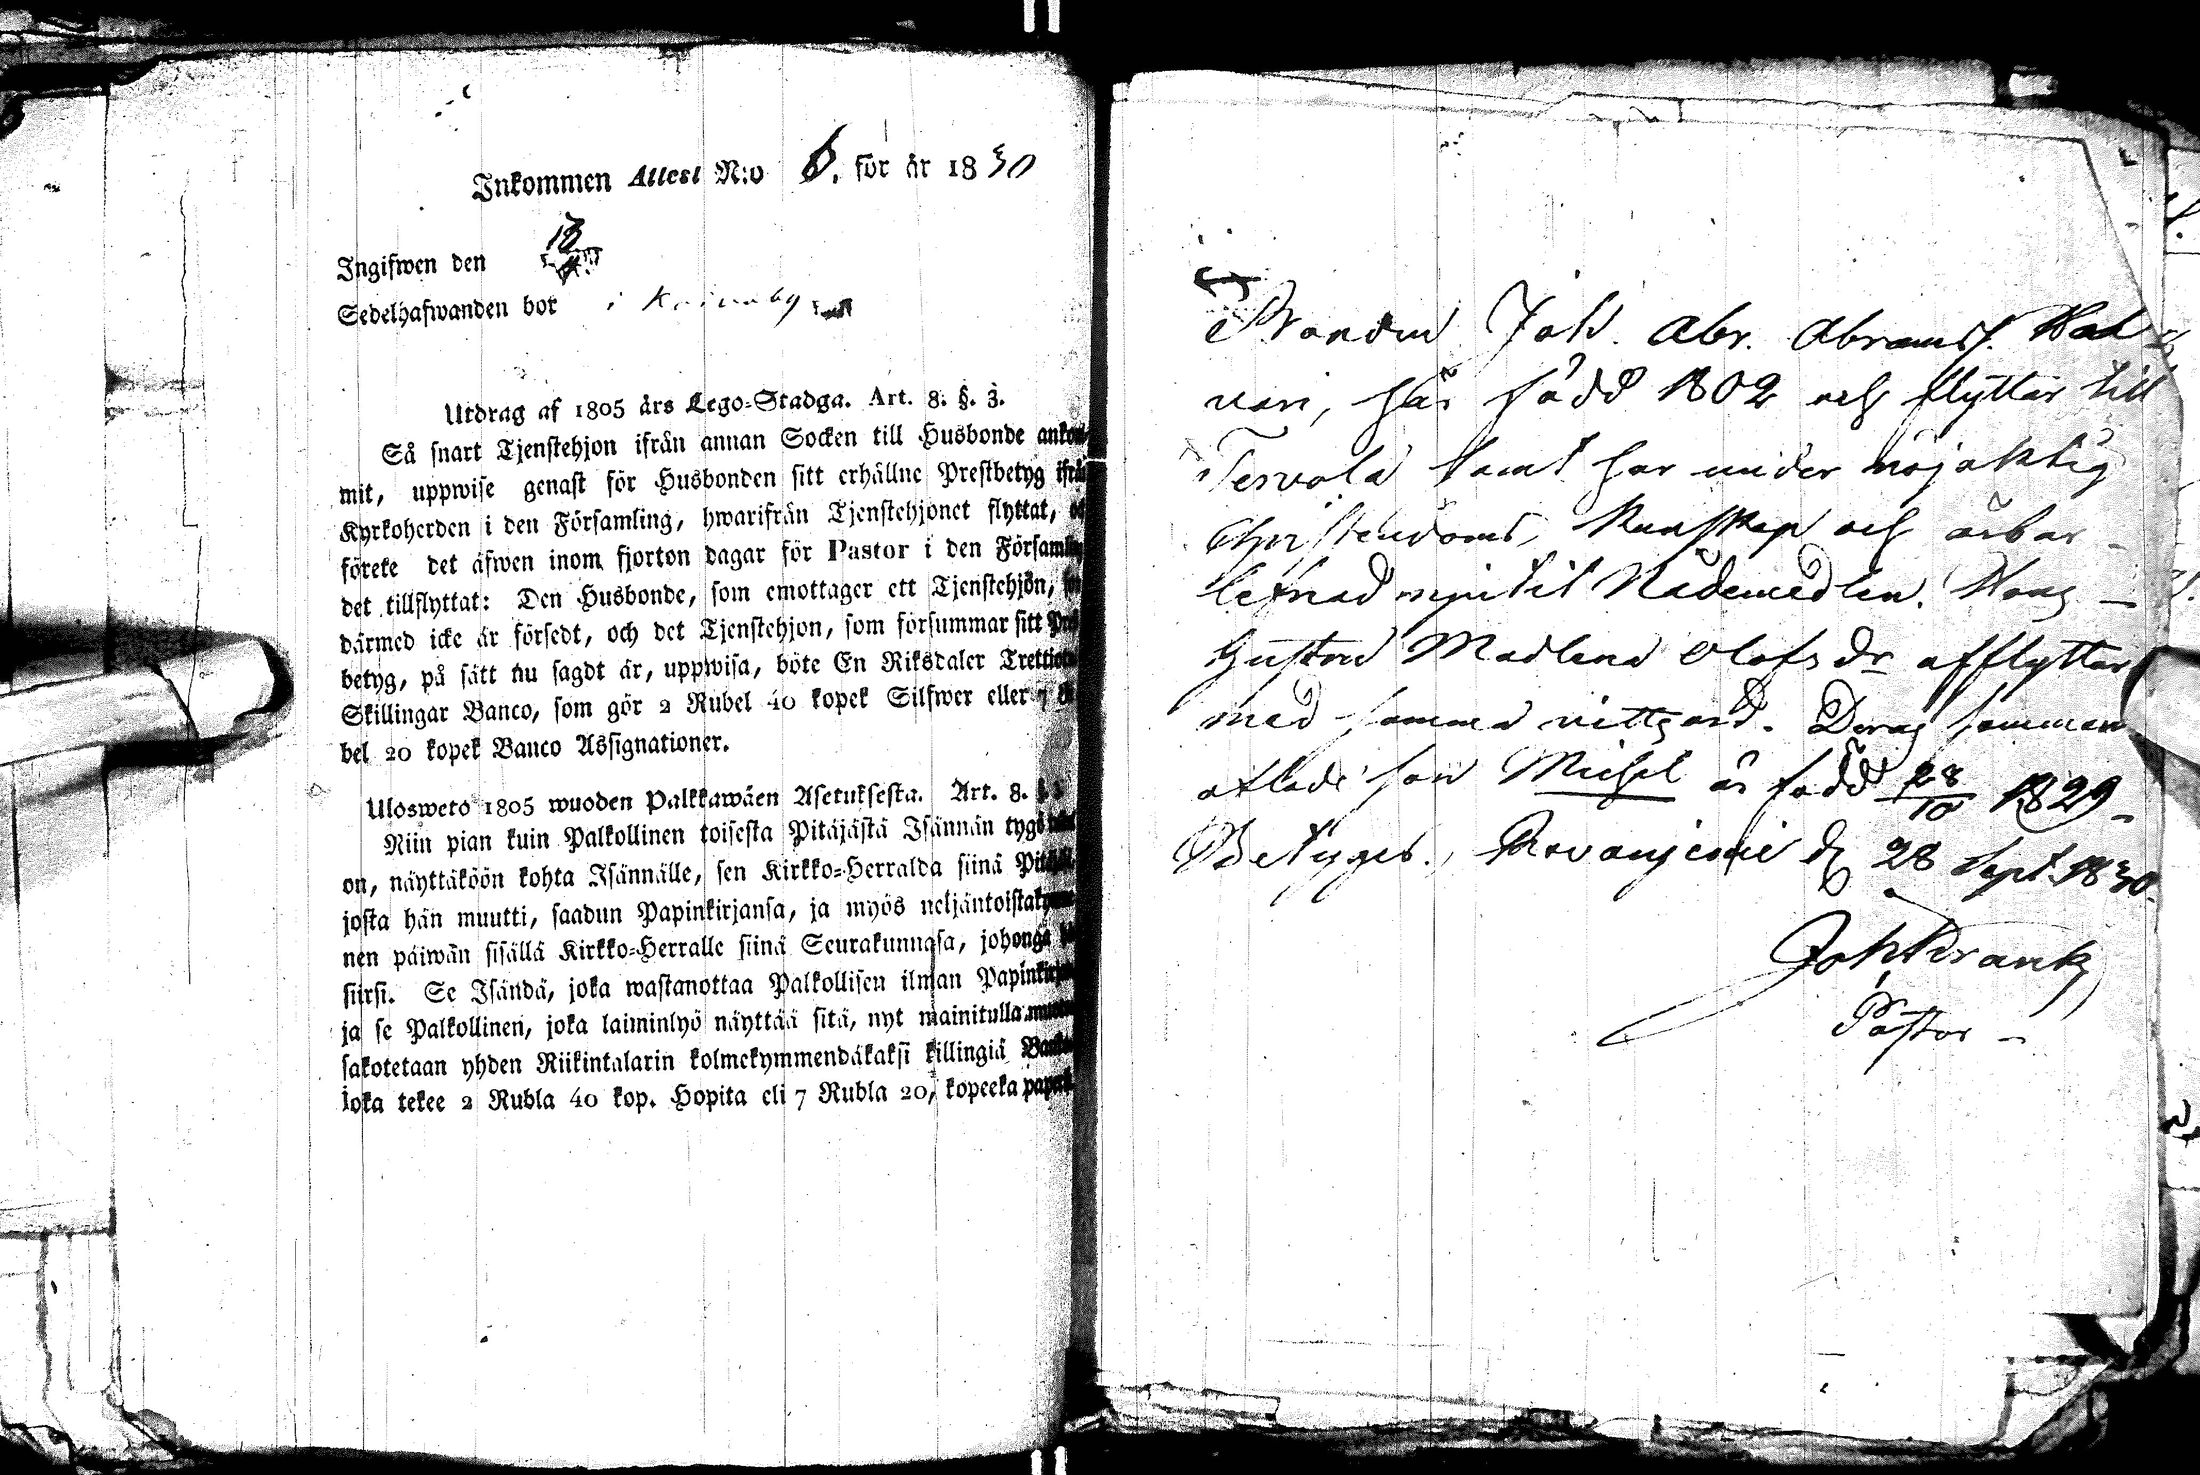 Inkommen Attest N:o 6. för år 1830
Ingifwen den
Sedelhafwanden bor i
Utdrag af 1805 års Lego-Stadga. Art. 8. §. 3.
Så snart Tjenstehjon ifrån annan Socken till Husbonde ankom-
mit, uppwise genast för Husbonden sitt erhållne Prestbetyg ifrå
Kyrkoherden i den Församling, hwarifrån Tjenstehjonet flyttat,
förete det äfwen inom fjorton dagar för Pastor i den Församlin
det tillflyttat: Den Husbonde, som emottager ett Tjenstehjon,
därmed icke är försedt, och det Tjenstehjon, som försummar sitt
betyg, på sätt nu sagdt är, uppwisa, böte En Riksdaler
Skillingar Banco, som gör 2 Rubel 40 kopek Silfwer eller 7
bel 20 kopek Banco Assignationer.
Ulosweto 1805 wuoden Palkkawäen Asetuksesta. Art. 8.
Niin pian kuin Palkollinen toisesta Pitäjästä Isännän tygö
on, näyttäköön kohta Isännälle, sen Kirkko-Herralda siinä
josta hän muutti, saadun Papinkirjansa, ja myös neljäntoistakym
nen päiwän sisällä Kirkko-Herralle siinä Seurakunnasa, johonga
siirsi. Se Isändä, joka wastanottaa Palkollisen ilman Papinkirja
ja se Palkollinen, joka laiminlyö näyttää sitä, nyt mainitulla
sakotetaan yhden Riikintalarin kolmekymmendäkaksi killingiä
joka tekee 2 Rubla 40 kop. Hopita eli 7 Rubla 20, kopeeka
Bonden Joh. Abr. Abramss.
här född 1802 och flyttar till
Tervola samt har under nöjaktig
Christendoms Kunskap och ärbar
lefnad njutit Nådemedlen. Hans
hustru Madlena Olofsdr afflyttar
med samma vittsord. Deras samman
aflade son Michel är född 28/10 1829
Betygas, Rovanjemi d. 28 Sept. 1830.
Joh Wrank
Pastor